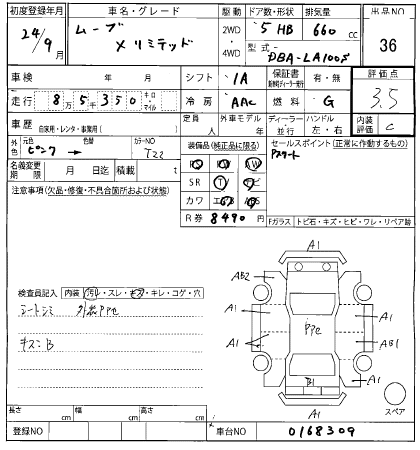 初度登録年月 車名・グレード 駆動 ドア数・形状 排気量 出品NO
24/9月 ムーブ X リミテッド 2WD 4WD 5 HB 660 cc 36
型式 DBA-LA100S
車検 年 月 シフト IA 保証書 有・無 評価点
走行 8万5千350 キロ・マイル 冷房 AAC 燃料 G 3.5
車歴 自家用・レンタ・事業用( ) 定員 人 外車モデル 年 ディーラー・並行 ハンドル 左・右 内装評価 C
外色 元色 ピンク → 色替 カラーNO T22
装備品(純正品に限る) セールスポイント(正常に作動するもの)
名義変更期限 月 日迄 積載 t
SR TV ナビ
カワ エアB
R券 8490 円
注意事項(欠品・修復・不具合箇所および状態)
Fガラス トビ石・キズ・ヒビ・ワレ・リペア跡
A1
AB2
A1 A1
A1 PPe AB1
B1 A1
A1
スペア
検査員記入 内装 汚レ・スレ・キズ・キレ・コゲ・穴
シートシミ 外装PPe
キズニB
長さ cm 幅 cm 高さ cm
登録NO 車台NO 0168309